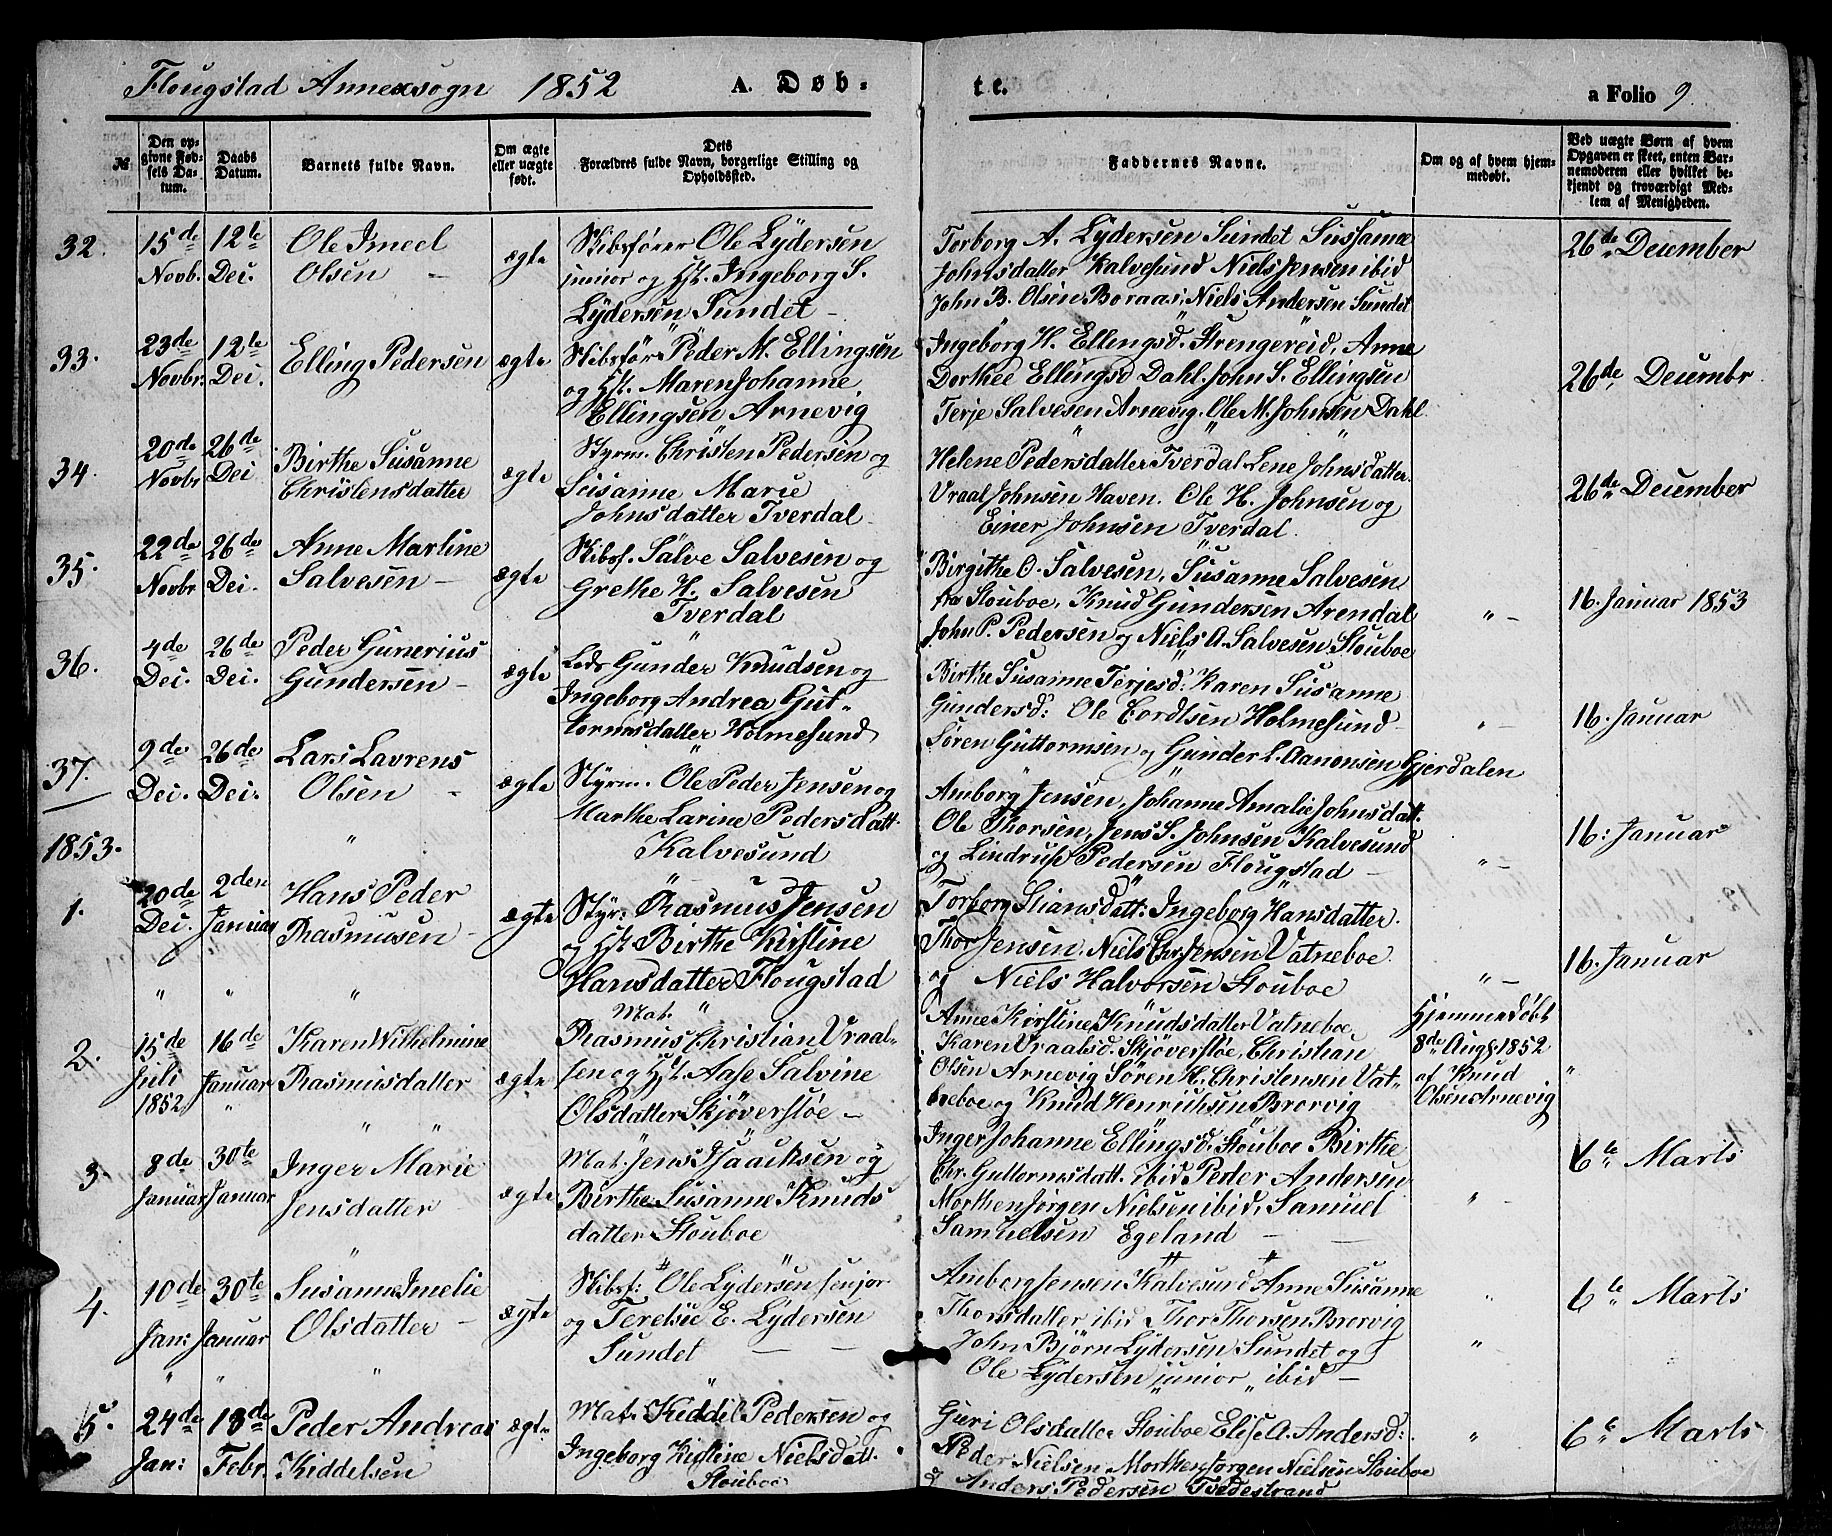 Flougstad Annexsogn 1852 A. Døb-
te. a Folio 9
№
Den op-
givne Fød-
sels Da-
tum.
Daabs
Datum.
Barnets fulde Navn.
Om ægte
eller uægte
født.
Dets
Forældres fulde Navn, borgerlige Stilling og
Opholdssted.
Faddernes Navne.
Om og af hvem hjem-
medøbt.
Ved uægte Børn af hvem
Opgaven er skeet, enten Bar-
nemoderen eller hvilket be-
kjendt og troværdigt Med-
lem af Menigheden.
32.
15de
Novb.
12te
Dei.
Ole Imeel
Olsen
ægte
Skibsfører Ole Lydersen
junior og Hst. Ingeborg S.
Lydersen Sundet
Torborg A. Lydersen Sundet Sussanne
Johnsdatter Kalvesund Niels Jensen ibid
John B. Olsen Boraas, Niels Andersen Sundet
26de December
33.
23de
Novbr.
12te
Dei.
Elling Pedersen
ægte
Skibsfør Peder M. Ellingsen
og Hst. Maren Johanne
Ellingsen Arnevig
Ingeborg H. Ellingsd. Strengereid, Anne
Dorthee Ellingsd Dahl. John S. Ellingsen
Terje Salvesen Arnevig. Ole M. Johnsen Dahl
26de Decembr.
34.
20de
Novbr
26de
Dei
Birthe Susanne
Christensdatter
ægte
Styrm. Christen Pedersen og
Susanne Marie
Johnsdatter Tverdal
Helene Pedersdatter Tverdal Lene Johnsdatter.
Vraal Johnsen Haven. Ole H. Johnsen og
Einer Johnsen Tverdal.
26de December
35.
22de
Novbr
26de
Dei.
Anne Martine
Salvesen
ægte
Skibsf. Salve Salvesen og
Grethe H. Salvesen
Tverdal
Birgithe O. Salvesen, Susanne Salvesen
fra Stouboe, Knud Gundersen Arendal
John P. Pedersen og Niels A. Salvesen Stouboe
16. Januar 1853
36.
4de
Dei.
26de
Dei.
Peder Gunerius
Gundersen
ægte
Lods Gunder Knudsen og
Ingeborg Andrea Gut-
tormsdatter Holmesund
Birthe Susanne Terjesd: Karen Susanne
Gundersd: Ole Cordtsen Holmesund
Søren Guttormsen og Gunder L. Aanonsen Gjerdalen
16. Januar
37.
9de
Dei.
26de
Dei.
Lars Lavrens
Olsen
ægte
Styrm. Ole Peder Jensen og
Marthe Larine Pedersdatt.
Kalvesund
Amborg Jensen, Johanne Amalie Johnsdatt.
Ole Thorsen, Jens S. Johnsen Kalvesund
og Lindrup Pedersen Flougstad
16: Januar
1853.
1.
20de
Dei.
2den
Januar
Hans Peder
Rasmusen
ægte
Styr. Rasmus Jensen
og Hst Birthe Kirstine
Hansdatter Flougstad
Torborg Stiansdatt: Ingeborg Hansdatter.
Thor Jensen, Niels Chr Jensen Vatneboe
og Niels Halvorsen Stouboe
16. Januar
2.
15de
Juli
1852.
16de
Januar
Karen Wilhelmine
Rasmusdatter
ægte
Mat.
Rasmus Christian Vraal-
sen og Hst. Aase Salvine
Olsdatter Skjøversløe
Anne Kirstine Knudsdatter Vatneboe
Karen Vraalsd. Skjøversløe, Christian
Olsen Arnevig Søren H. Christensen Vat-
neboe og Knud Henrichsen Brorvig
Hjemmedøbt
8de Aug 1852
af Knud
Olsen Arnevig
3.
8de
Januar
30te
Januar
Inger Marie
Jensdatter
ægte
Mat. Jens Isaachsen og
Birthe Susanne Knuds
datter Stouboe
Inger Johanne Ellingsd. Stouboe Birthe
Chr. Guttormsdatt. ibid Peder Andersen
Morthen Jørgen Nielsen ibid, Samuel
Samuelsen Egeland
6te Marts
4.
10de
Jan:
30te
Januar
Susanne Imelie
Olsdatter
ægte
Skibsf: Ole Lydersen senjor
og Terelsie E. Lydersen
Sundet
Amborg Jensen Kalvesund Anne Susanne
Thorsdatter ibid Thor Thorsen Brorvig
John Bjørn Lydersen Sundet og
Ole Lydersen junior ibid
6te Marts
5.
24de
Jan:
13de
Febr.
Peder Andreas
Kiddelsen
ægte
Mat. Kiddel Pedersen og
Ingeborg Kirstine Nielsdatt.
Stouboe
Guri Olsdatter Stouboe Elise A. Andersd:
Peder Nielsen Morthen Jørgen Nielsen Stouboe
og Anders Pedersen Tvedestrand
6te Marts